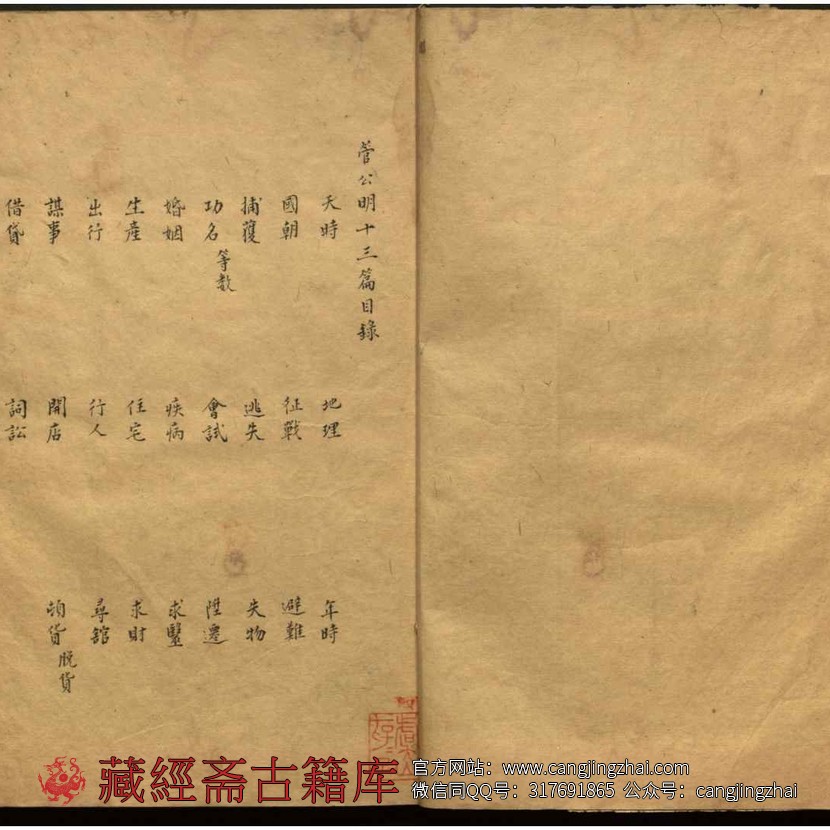 管公明十三篇目錄
天時 地理 年時
國朝 征戰 避難
捕獲 逃失 失物
功名等数 會試 陞遷
婚姻 疾病 求醫
生產 住宅 求財
出行 行人 尋舘
謀事 開店 頓貨脫貨
借貸 詞訟
藏經斋古籍库
官方网站：www.cangjingzhai.com
微信同QQ号：317691865 公众号：cangjingzhai